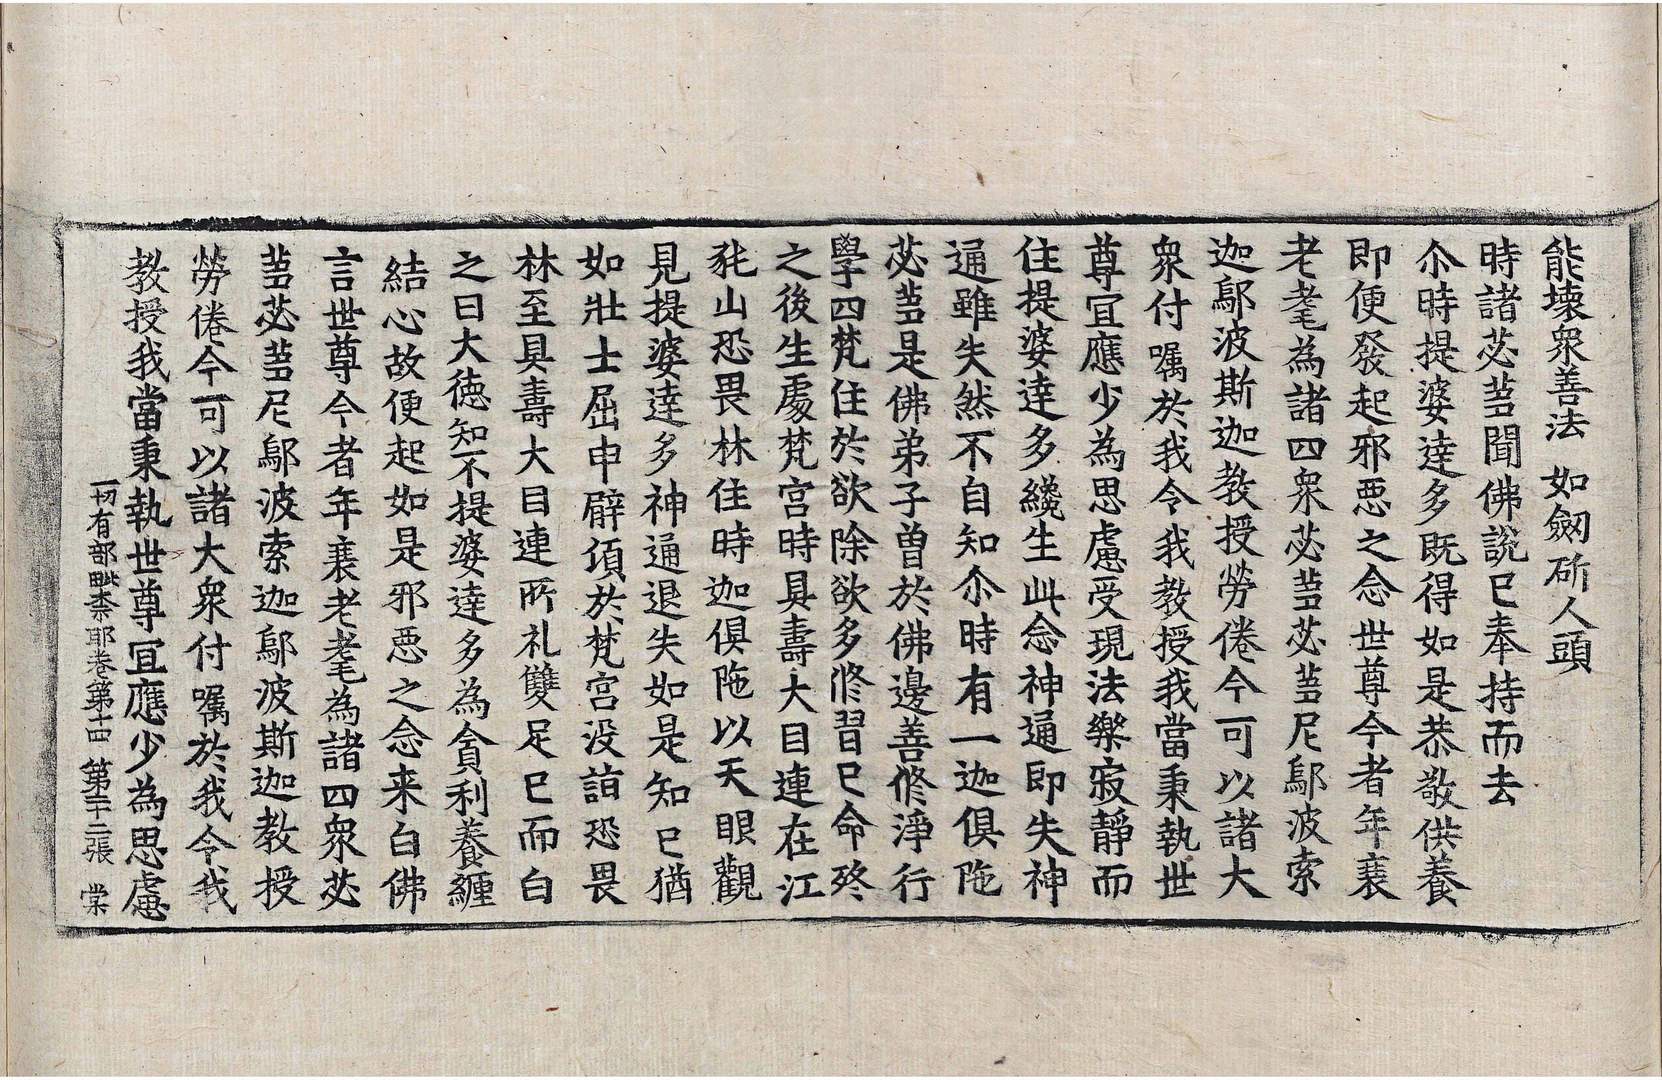 能壞衆善法 如劔斫人頭
時諸苾蒭聞佛說已奉持而去
尒時提婆達多既得如是恭敬供養
即便發起邪惡之念世尊今者年衰
老耄為諸四衆苾蒭苾蒭尼鄔波索
迦鄔波斯迦教授勞倦今可以諸大
衆付囑於我令我教授我當秉執世
尊宜應少為思慮受現法樂寂靜而
住提婆達多纔生此念神通即失神
通雖失然不自知尒時有一迦俱陁
苾蒭是佛弟子曽於佛邊善修淨行
學四梵住於欲除欲多修習已命終
之後生處梵宮時具壽大目連在江
猪山恐畏林住時迦俱陁以天眼觀
見提婆達多神通退失如是知已猶
如壯士屈申臂頃於梵宮没詣恐畏
林至具壽大目連所礼雙足已而白
之曰大德知不提婆達多為貪利養纏
結心故便起如是邪惡之念来白佛
言世尊今者年衰老耄為諸四衆苾
蒭苾蒭尼鄔波索迦鄔波斯迦教授
勞倦今可以諸大衆付囑於我令我
教授我當秉執世尊宜應少為思慮
一切有部毗柰耶卷第十四 第二十二張 棠